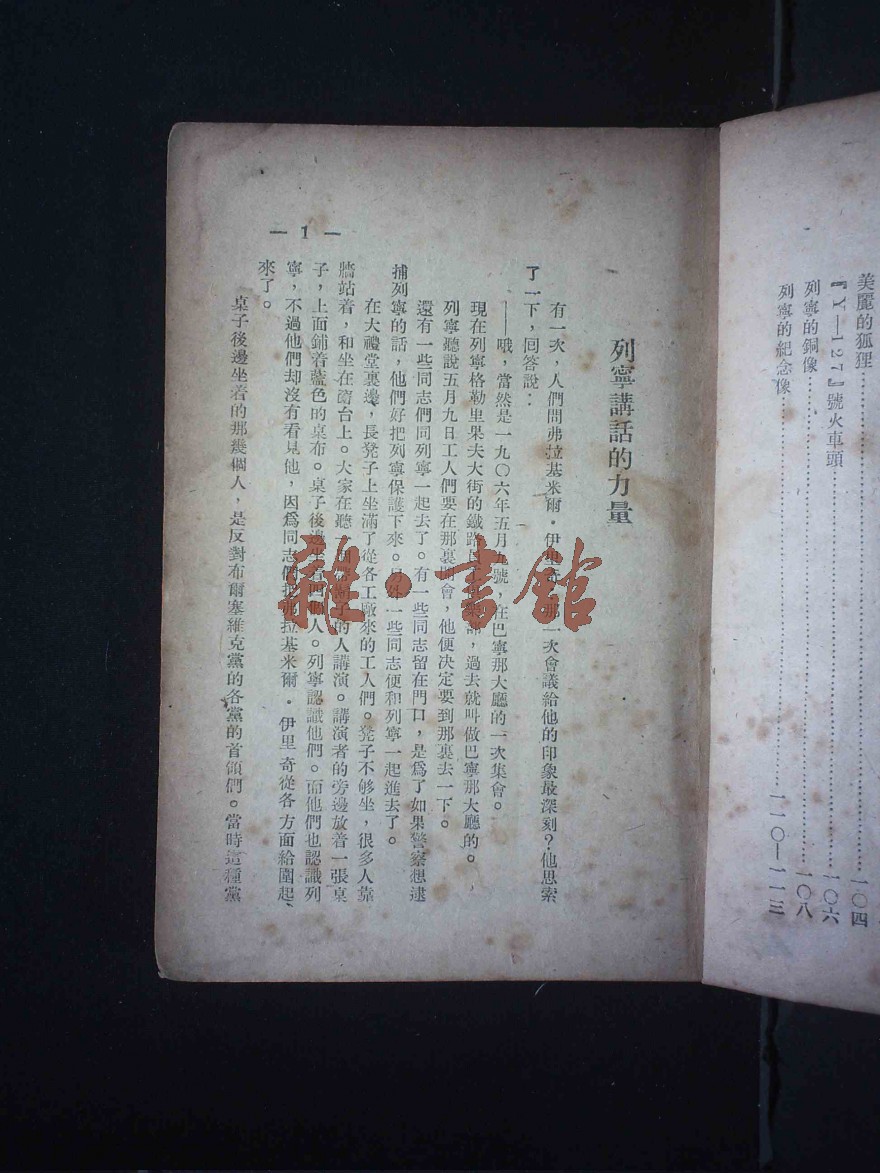 美麗的狐狸……一〇四
『Y—127』號火車頭……一〇六
列寧的銅像……一〇八
列寧的紀念像……一一〇—一一三
列寧講話的力量
有一次，人們問弗拉基米爾．伊里奇，那一次會議給他的印象最深刻？他思索
了一下，回答說：
——哦，當然是一九〇六年五月九號，在巴寧那大廳的一次集會。
現在列寧格勒里果夫大街的鐵路 部，過去就叫做巴寧那大廳的。
列寧聽說五月九日工人們要在那裏開會，他便决定要到那裏去一下。
還有一些同志們同列寧一起去了。有一些同志留在門口，是爲了如果警察想逮
捕列寧的話，他們好把列寧保護下來。另外一些同志便和列寧一起進去了。
在大禮堂裏邊，長凳子上坐滿了從各工廠來的工人們。凳子不够坐，很多人靠
牆站着，和坐在窗台上。大家在聽 子的人講演。講演者的旁邊放着一張桌
子，上面鋪着藍色的桌布。桌子後邊坐着四個人。列寧認識他們。而他們也認識列
寧，不過他們却沒有看見他，因爲同志們把弗拉基米爾．伊里奇從各方面給圍起
來了。
桌子後邊坐着的那幾個人，是反對布爾塞維克黨的各黨的首領們。當時這種黨
— 1 —
雜·書館